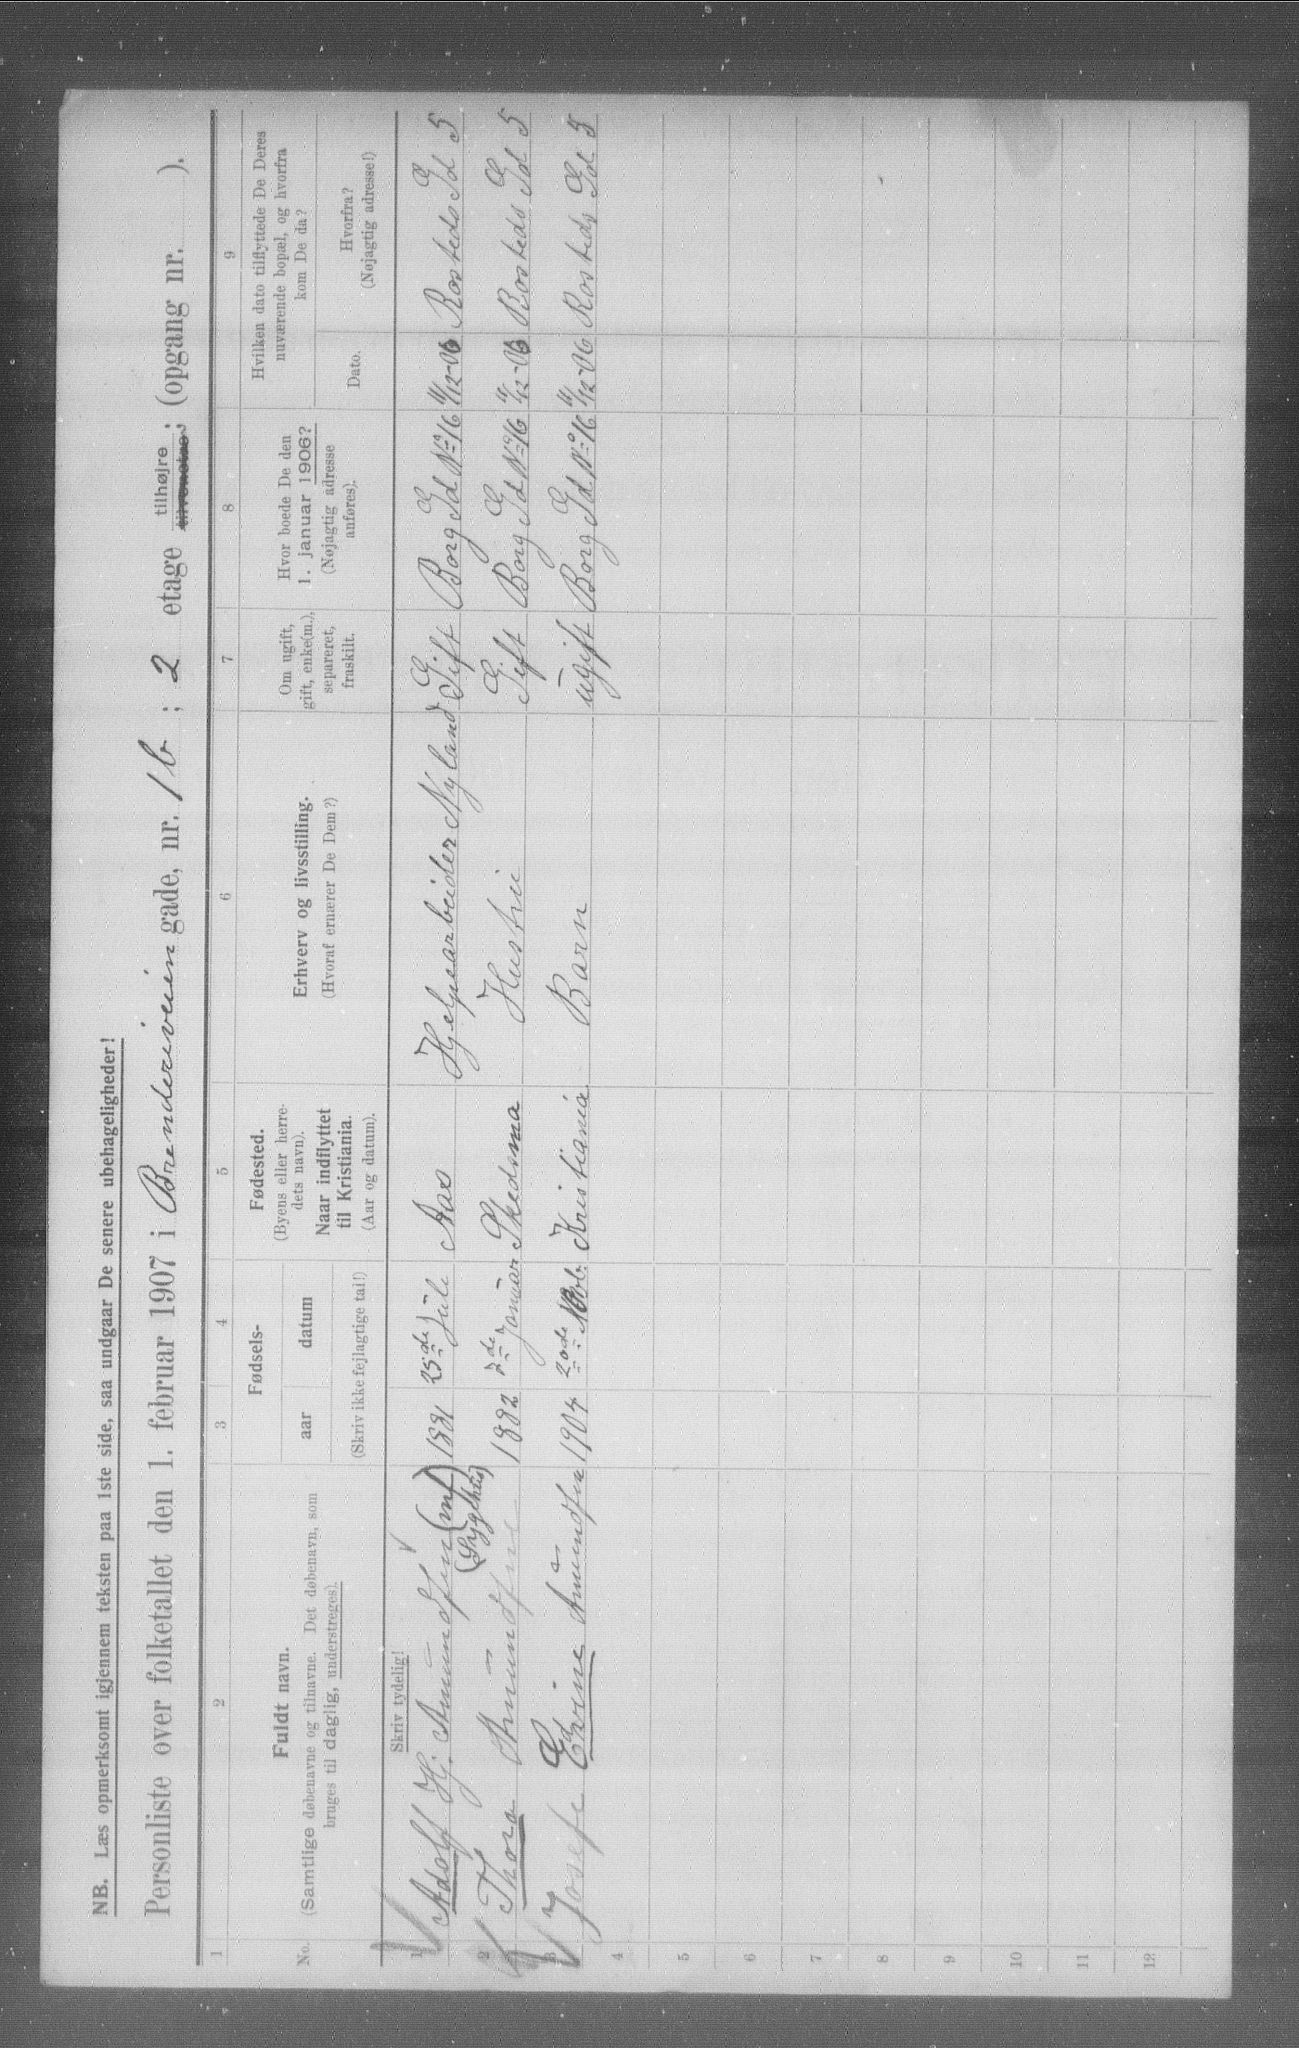 NB. Læs opmerksomt igjennem teksten paa 1ste side, saa undgaar De senere ubehageligheder!
Personliste over folketallet den 1. februar 1907 i Brenderiveien gade, nr. 1b ; 2 etage tilhøjre tilvenstre; (opgang nr. ).
1 2 3 4 5 6 7 8 9
No. Fuldt navn. (Samtlige døbenavne og tilnavne. Det døbenavn, som bruges til daglig, understreges).
Fødsels- aar datum (Skriv ikke fejlagtige tal!)
Fødested. (Byens eller herredets navn). Naar indflyttet til Kristiania. (Aar og datum).
Erhverv og livsstilling. (Hvoraf ernærer De Dem?)
Om ugift, gift, enke(m.), separeret, fraskilt.
Hvor boede De den 1. januar 1906? (Nøjagtig adresse anføres).
Hvilken dato tilflyttede De Deres nuværende bopæl, og hvorfra kom De da?
Dato. Hvorfra? (Nøjagtig adresse!)
Skriv tydelig!
1 Adolf Hj. Amundsen (mf) 1881 25de Juli Aas Hjelpearbeider Nyland Gift Borg Gd No 16 11/12-06 Rosteds Gd 5
(Sygehus)
2 Thora Amundsen 1882 7de Januar Skedsmo Hustru Gift Borg Gd No 16 11/12-06 Rosteds Gd 5
3 Josefe Elvine Amundsen 1904 20de Kristiania Barn ugift Borg Gd No 16 11/12-06 Rosteds Gd 5
4
5
6
7
8
9
10
11
12